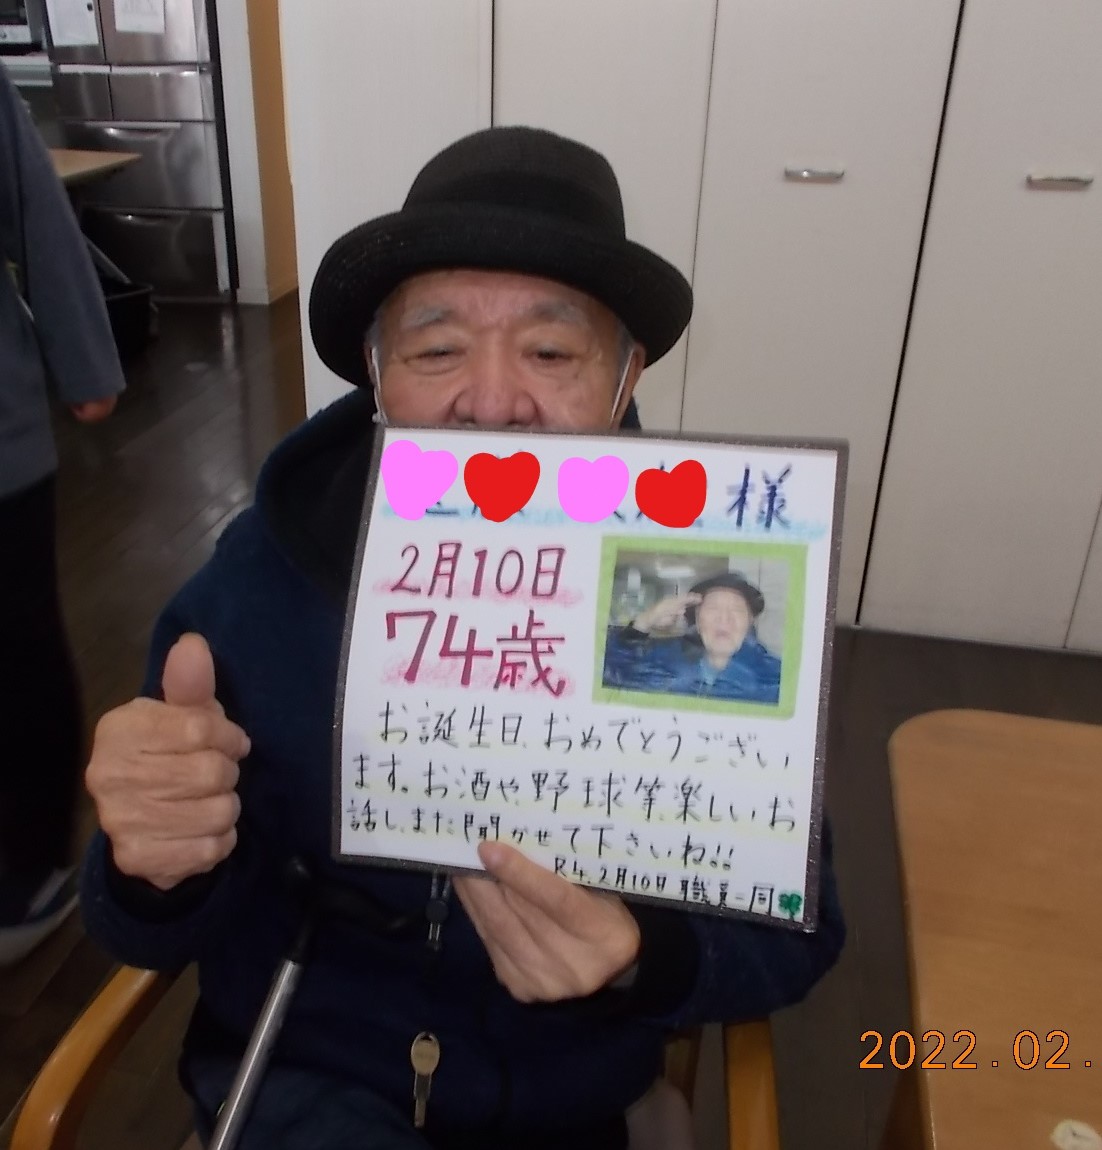 様
2月10日
74歳
お誕生日、おめでとうござい
ます。お酒や、野球等、楽しいお
話し、また聞かせて下さいね!!
R4.2月10日 職員一同
2022.02.